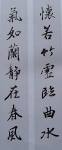 懷若竹虛臨曲水
氣如蘭靜在春風